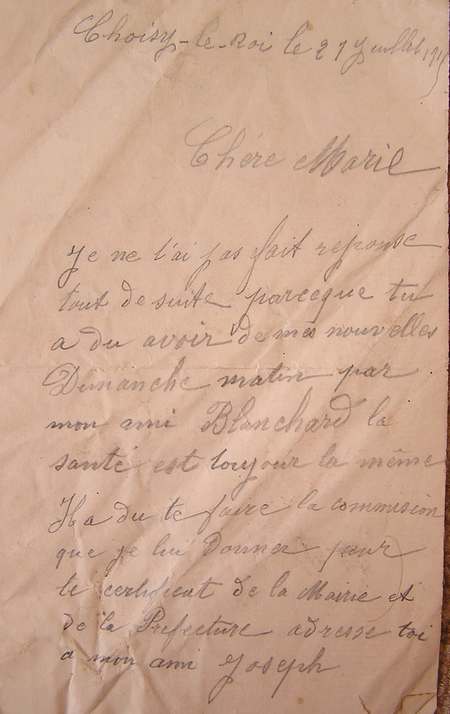 Choisy-le-Roi le 27 Juillet 1915
Chère Marie
Je ne t'ai pas fait reponse
tout de suite parceque tu
a du avoir de mes nouvelles
Dimanche matin par
mon ami Blanchard la
santé est toujour la même
Il a du te faire la commision
que je lui Donner pour
le certificat de la Mairie et
de la Prefecture adresse toi
a mon ami Joseph